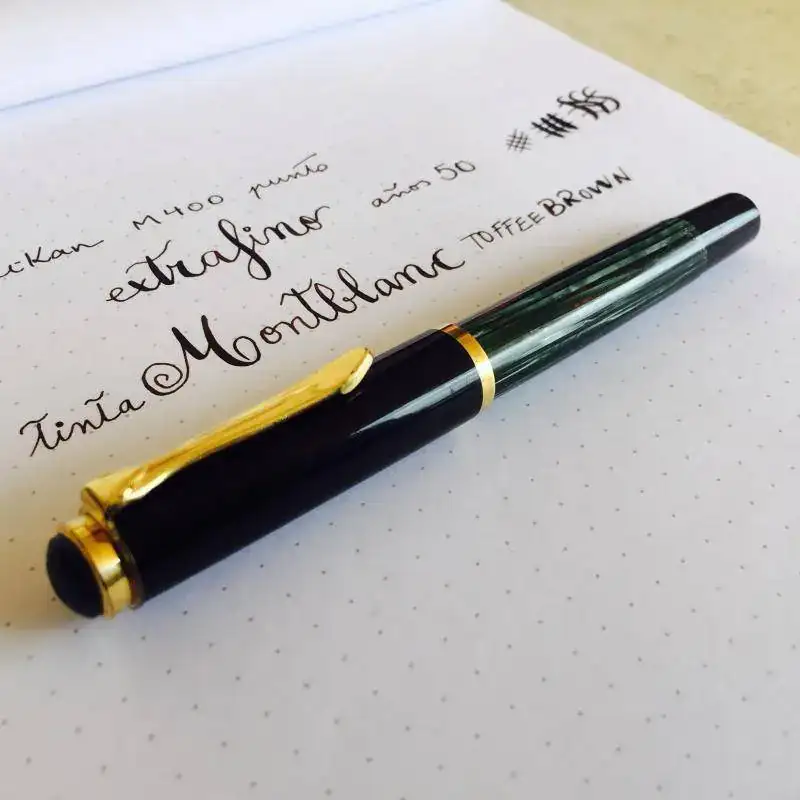 M400 punto
extrafino años 50
tinta Montblanc TOFFEE BROWN